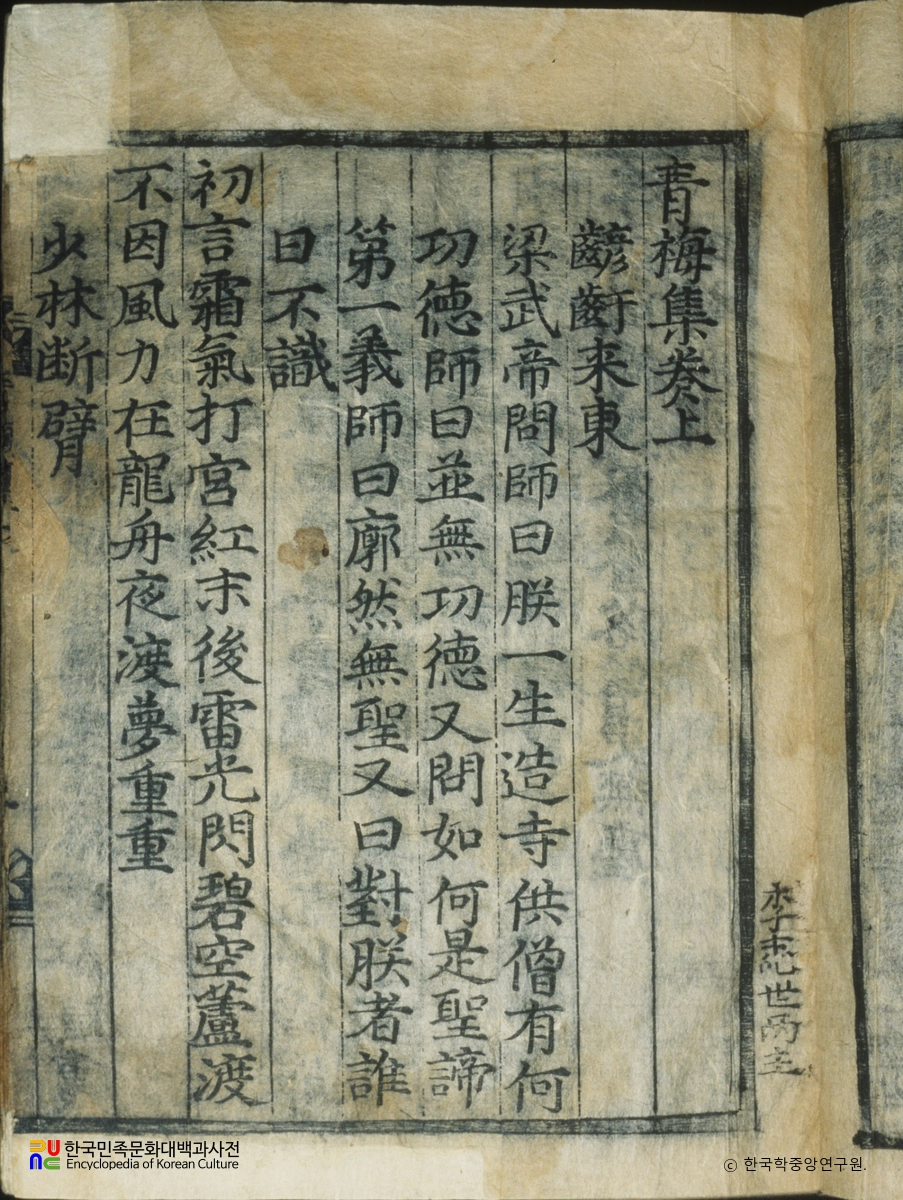 青梅集卷上
齴齖来東
梁武帝問師曰朕一生造寺供僧有何
功德師曰並無功德又問如何是聖諦
第一義師曰廓然無聖又曰對朕者誰
曰不識
初言霜氣打宮紅末後雷光閃碧空蘆渡
不因風力在龍舟夜渡夢重重
少林断臂
世兩主
한국민족문화대백과사전
Encyclopedia of Korean Culture
© 한국학중앙연구원.